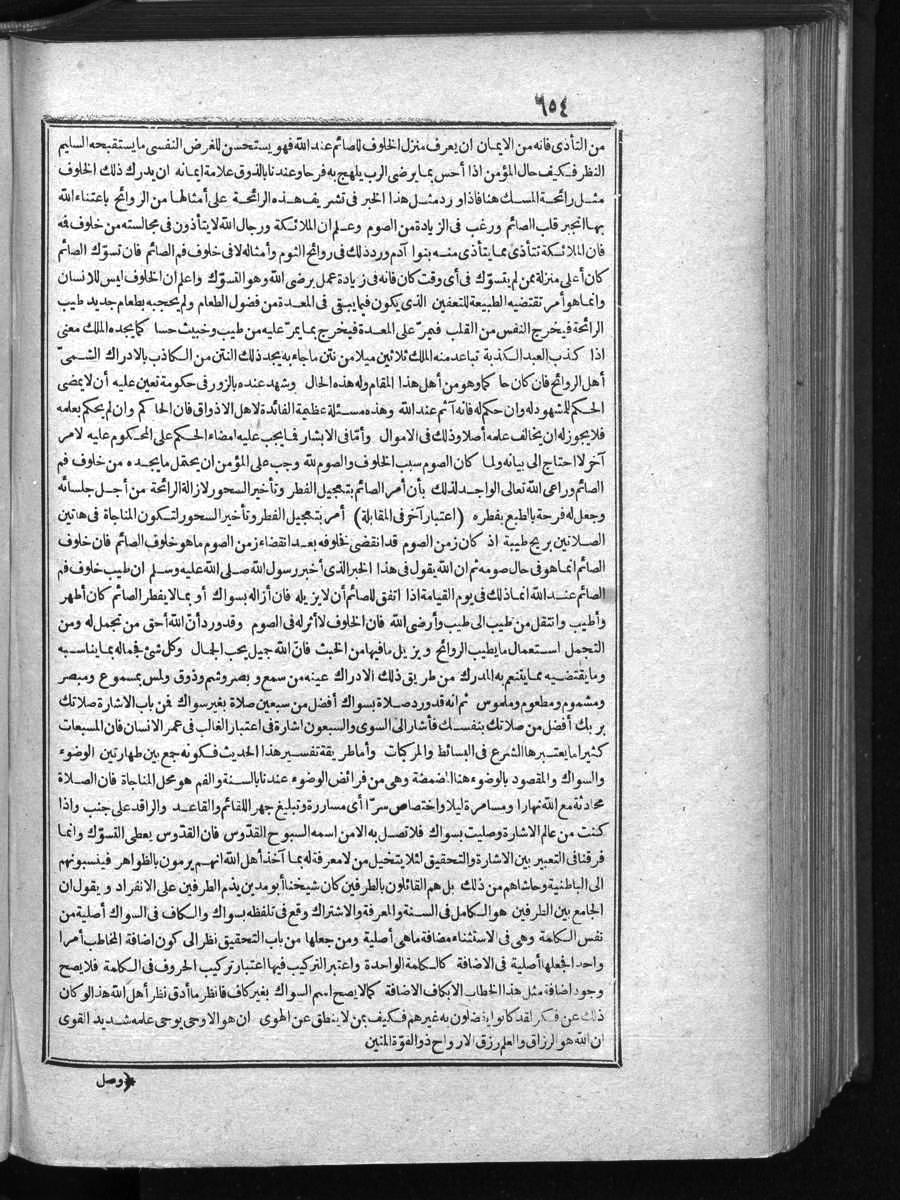 ٦٥٤
من التأذى فانه من الايمان ان يعرف منزل الخلوف للصائم عند الله فهو يستحسن للغرض النفسى ما يستقبحه السليم
النظر فكيف حال المؤمن اذا أحس بما يرضى الرب يلهج به فرحا وعندنا بالذوق علامة ايمانه ان يدرك ذلك الخلوف
مثل رائحة المسك هنا فاذا ورد مثل هذا الخبر فى تشريف هذه الرائحة على أمثالها من الروائح باعتناء الله
بها انجبر قلب الصائم ورغب فى الزيادة من الصوم وعلم ان الملائكة ورجال الله لا يتأذون فى مجالسته من خلوف فه
فان الملائكة تتأذى مما يتأذى منه بنوا آدم ورد ذلك فى روائح الثوم وأمثاله لا فى خلوف فم الصائم فان تسوّك الصائم
كان أعلى منزلة ممن لم يتسوّك فى أى وقت كان فانه فى زيادة عمل يرضى الله وهو التسوّك واعلم ان الخلوف ليس للانسان
وانما هو أمر تقتضيه الطبيعة للتعفين الذى يكون فيما يبقى فى المعدة من فضول الطعام ولم يحجبه بطعام جديد طيب
الرائحة فيخرج النفس من القلب فيمرّ على المعدة فيخرج بما يمرّ عليه من طيب وخبيث حسا كما يجده الملك معنى
اذا كذب العبد الكذبة تباعد منه الملك ثلاثين ميلا من نتن ماجاء به يجد ذلك النتن من الكاذب بالادراك الشمىّ
أهل الروائح فان كان حاكما وهو من أهل هذا المقام وله هذه الحال وشهد عنده بالزور فى حكومة تعين عليه أن لا يمضى
الحكم للمشهود له وان حكم له فانه آثم عند الله وهذه مسئلة عظيمة الفائدة لاهل الاذواق فان الحاكم وان لم يحكم بعلمه
فلا يجوز له ان يخالف علمه أصلا وذلك فى الاموال وأمّا فى الابشار فيجب عليه امضاء الحكم على المحكوم عليه لامر
آخر لا احتاج الى بيانه ولما كان الصوم سبب الخلوف والصوم لله وجب على المؤمن ان يحتمل ما يجده من خلوف فم
الصائم وراعى الله تعالى الواجد لذلك بأن أمر الصائم بتعجيل الفطر وتأخير السحور لازالة الرائحة من أجل جلسائه
وجعل له فرحة بالطبع بفطره (اعتبار آخر فى المقابلة) أمر بتعجيل الفطر وتأخير السحور لتكون المناجاة فى هاتين
الصلاتين بريح طيبة اذ كان زمن الصوم قد انقضى فخلوفه بعد انقضاء زمن الصوم ما هو خلوف الصائم فان خلوف
الصائم انما هو فى حال صومه ثم ان الله يقول فى هذا الخبر الذى أخبر رسول الله صلى الله عليه وسلم ان طيب خلوف فم
الصائم عند الله انما ذلك فى يوم القيامة اذا اتفق للصائم أن لا يزيله فان أزاله بسواك أو بما لا يفطر الصائم كان أطهر
وأطيب وانتقل من طيب الى طيب وأرضى الله فان الخلوف لا أثر له فى الصوم وقد ورد أنّ الله أحق من تجمل له ومن
التجمل استعمال ما يطيب الروائح ويزيل ما فيها من الخبث فانّ الله جميل يحب الجمال وكل شئ فجماله بما يناسبه
وما يقتضيه مما يتنعم به المدرك من طريق ذلك الادراك عينه من سمع وبصر وشم وذوق ولمس بمسموع ومبصر
ومشموم ومطعوم وملموس ثم انه قد ورد صلاة بسواك أفضل من سبعين صلاة بغير سواك فن باب الاشارة صلاتك
بربك أفضل من صلاتك بنفسك فأشار الى السوى والسبعون اشارة فى اعتبار الغالب فى عمر الانسان فان المسبعات
كثيرا ما يعتبرها الشرع فى البسائط والمركبات وأما طريقة تفسير هذا الحديث فكونه جمع بين طهارتين الوضوء
والسواك والمقصود بالوضوء هنا المضمضة وهى من فرائض الوضوء عندنا بالسنة والفم هو محل المناجاة فان الصلاة
محادثة مع الله نهارا ومسامرة ليلا واختصاص سرّا أى مساررة وتبليغ جهر اللقائم والقاعد والراقد على جنب واذا
كنت من عالم الاشارة وصليت بسواك فلا تصل به الا من اسمه السبوح القدّوس فان القدّوس يعطى التسوّك وانما
فرقنا فى التعبير بين الاشارة والتحقيق لئلا يتخيل من لا معرفة له بما آخذ أهل الله انهم يرمون بالظواهر فينسبونهم
الى الباطنية وحاشاهم من ذلك بل هم القائلون بالطرفين كان شيخنا أبو مدين يذم الطرفين على الانفراد ويقول ان
الجامع بين الطرفين هو الكامل فى السنة والمعرفة والاشتراك وقع فى تلفظه بسواك والكاف فى السواك أصلية من
نفس الكلمة وهى فى الاستثناء مضافة ماهى أصلية ومن جعلها من باب التحقيق نظر الى كون اضافة المخاطب أمرا
واحد الجعلها أصلية فى الاضافة كالكلمة الواحدة واعتبر التركيب فيها اعتبار تركيب الحروف فى الكلمة فلا يصح
وجود اضافة مثل هذا الخطاب الا بكاف الاضافة كما لا يصح اسم السواك بغير كاف فانظر ما أدق نظر أهل الله هذا لو كان
ذلك عن فكر لقد كانوا يفضلون به غيرهم فكيف بمن لا ينطق عن الهوى ان هو الا وحى يوحى علمه شديد القوى
ان الله هو الرزاق والعلم رزق الارواح ذو القوّة المتين
﴿وصل